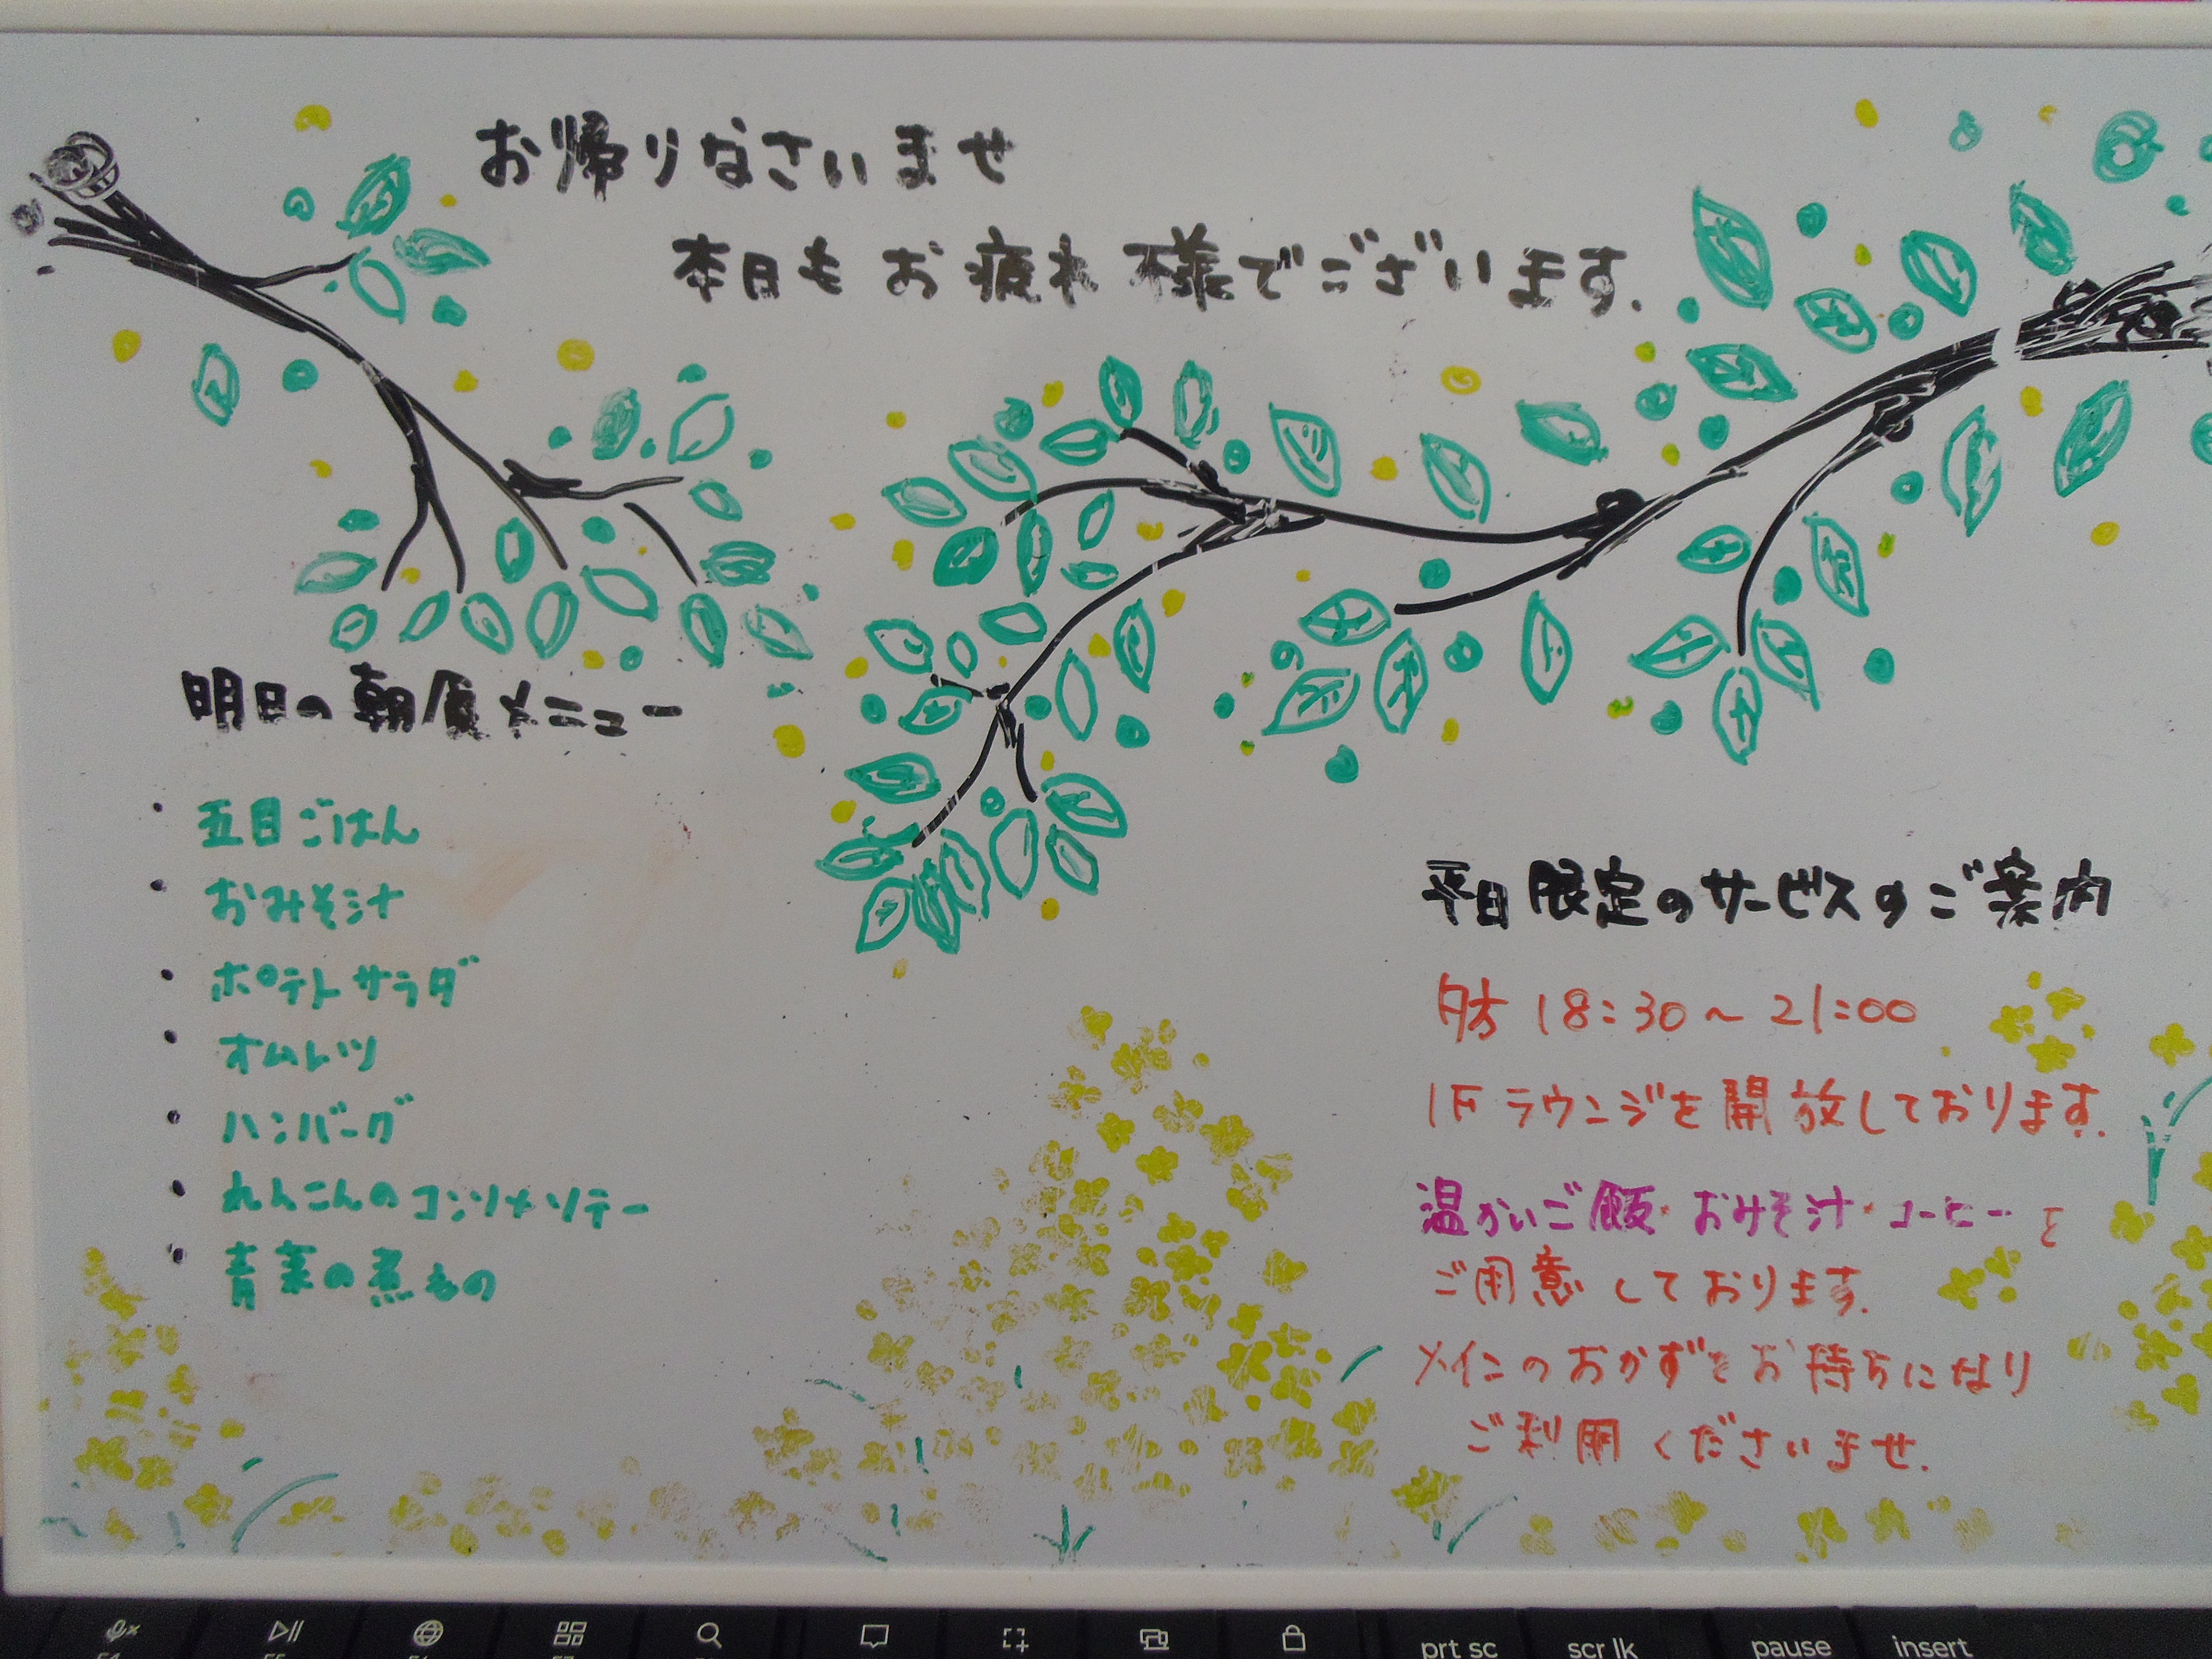 お帰りなさいませ
本日もお疲れ様でございます.
明日の朝食メニュー
・五目ごはん
・おみそ汁
・ポテトサラダ
・オムレツ
・ハンバーグ
・れんこんのコンソメソテー
・青菜の煮もの
平日限定のサービスのご案内
夕方 18:30～21:00
1Fラウンジを開放しております.
温かいご飯・おみそ汁・コーヒーを
ご用意しております.
メインのおかずをお持ちになり
ご利用くださいませ.
prt sc scr lk pause insert